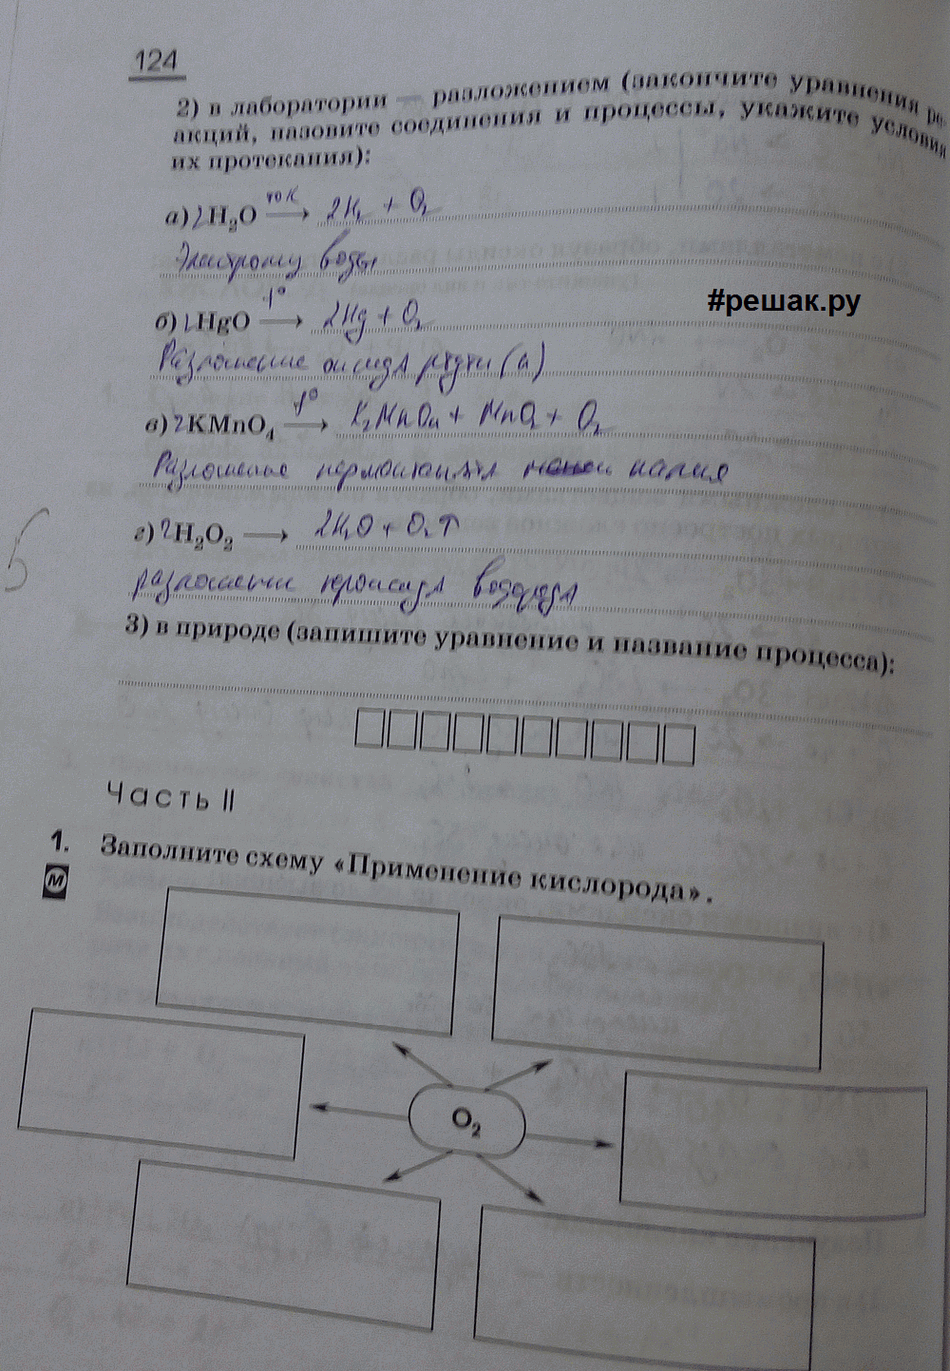 124
2) в лаборатории — разложением (закончите уравнения ре-
акций, назовите соединения и процессы, укажите условия
их протекания):
ток
а) 2H₂O ⟶ 2H₂ + O₂
Электролиз воды
t°
б) 2HgO ⟶ 2Hg + O₂
Разложение оксида ртути (II)
t°
в) 2KMnO₄ ⟶ K₂MnO₄ + MnO₂ + O₂
Разложение калия
г) 2H₂O₂ ⟶ 2H₂O + O₂↑
разложение пероксида водорода
5
3) в природе (запишите уравнение и название процесса):
Часть II
1. Заполните схему «Применение кислорода».
М
O₂
#решак.ру